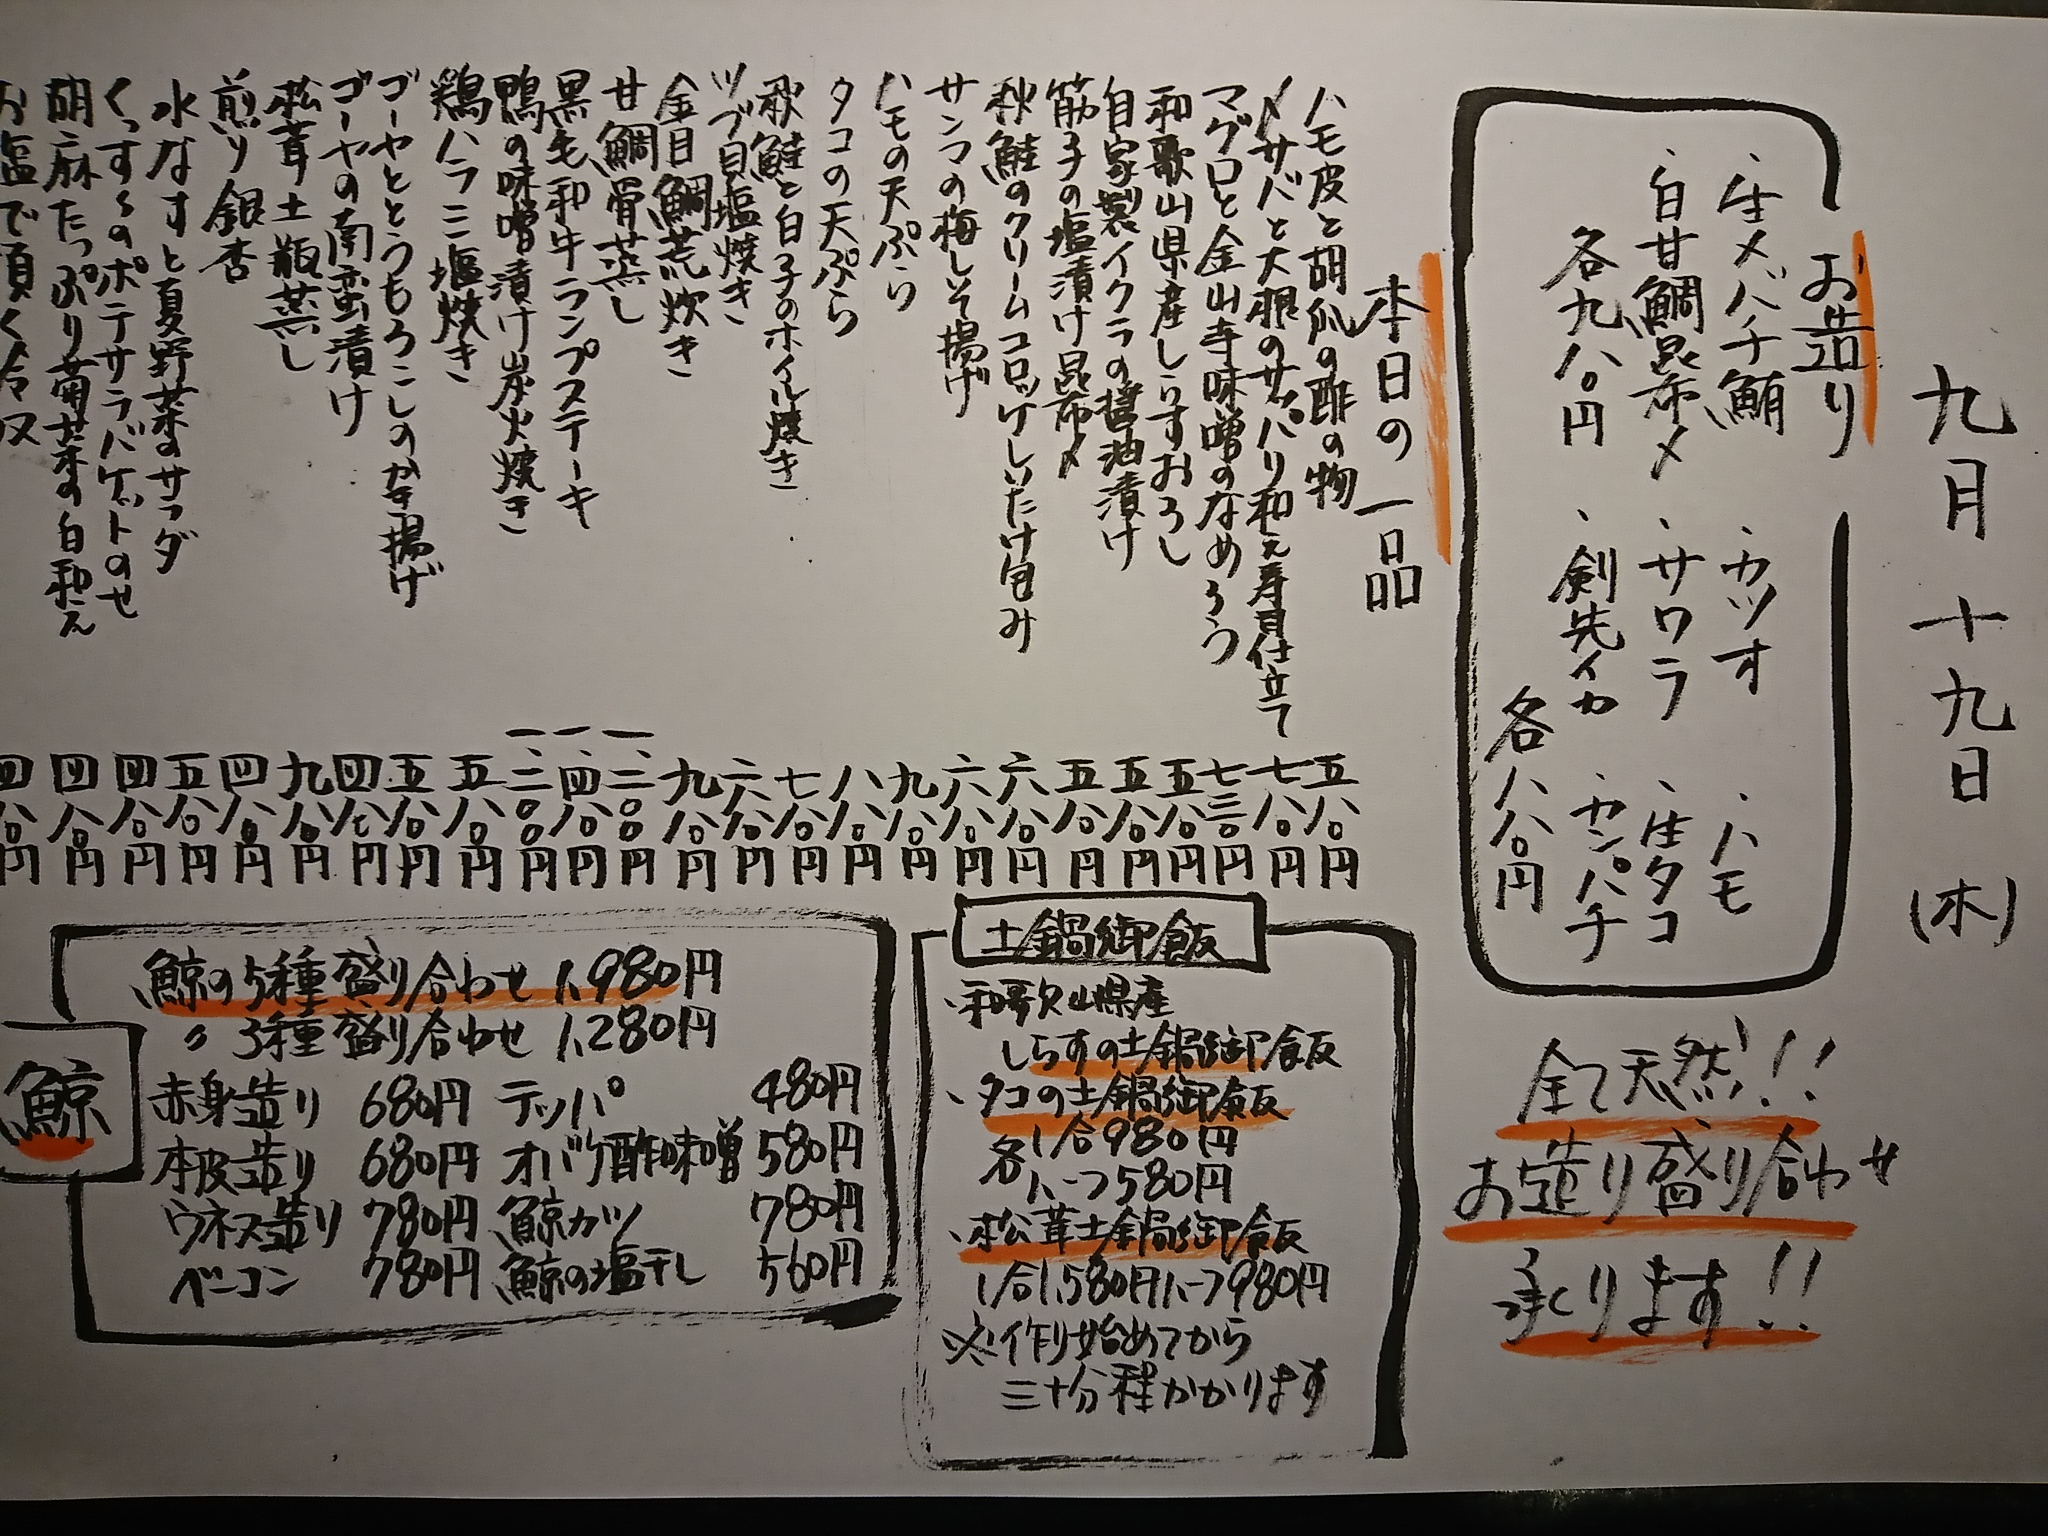 九月十九日(木)
お造り
・生メバチ鮪 ・カツオ ・ハモ
・白甘鯛昆布〆 ・サワラ ・生タコ
各九八〇円 ・剣先イカ ・カンパチ
各八八〇円
全て天然!!
お造り盛り合わせ
承ります!!
本日の一品
ハモ皮と胡瓜の酢の物 五八〇円
〆サバと大根のサッパリ和え寿司仕立て 七八〇円
マグロと金山寺味噌のなめろう 七三〇円
和歌山県産しらすおろし 五八〇円
自家製イクラの醤油漬け 五八〇円
筋子の塩漬け昆布〆 五八〇円
秋鮭のクリームコロッケしいたけ包み 六八〇円
サンマの梅しそ揚げ 六八〇円
ハモの天ぷら 九八〇円
タコの天ぷら 八八〇円
秋鮭と白子のホイル焼き 七八〇円
ツブ貝塩焼き 六八〇円
金目鯛荒炊き 九八〇円
甘鯛骨蒸し 一、二〇〇円
黒毛和牛ランプステーキ 一、四八〇円
鴨の味噌漬け炭火焼き 一、二〇〇円
鶏ハラミ塩焼き 五八〇円
ゴーヤととうもろこしのかき揚げ 五八〇円
ゴーヤの南蛮漬け 四八〇円
松茸土瓶蒸し 九八〇円
煎り銀杏 四八〇円
水なすと夏野菜のサラダ 五八〇円
くっすくのポテサラバゲットのせ 四八〇円
胡麻たっぷり菊菜の白和え 四八〇円
お塩で頂く冷奴 四八〇円
土鍋御飯
・和歌山県産
しらすの土鍋御飯
・タコの土鍋御飯
各1合980円
ハーフ580円
・松茸土鍋御飯
1合1,580円ハーフ980円
※作り始めてから
三十分程かかります
鯨
鯨の5種盛り合わせ 1,980円
〃 3種盛り合わせ 1,280円
赤身造り 680円 テッパ 480円
本皮造り 680円 オバケ酢味噌 580円
ウネス造り 780円 鯨カツ 780円
ベーコン 780円 鯨の塩干し 560円